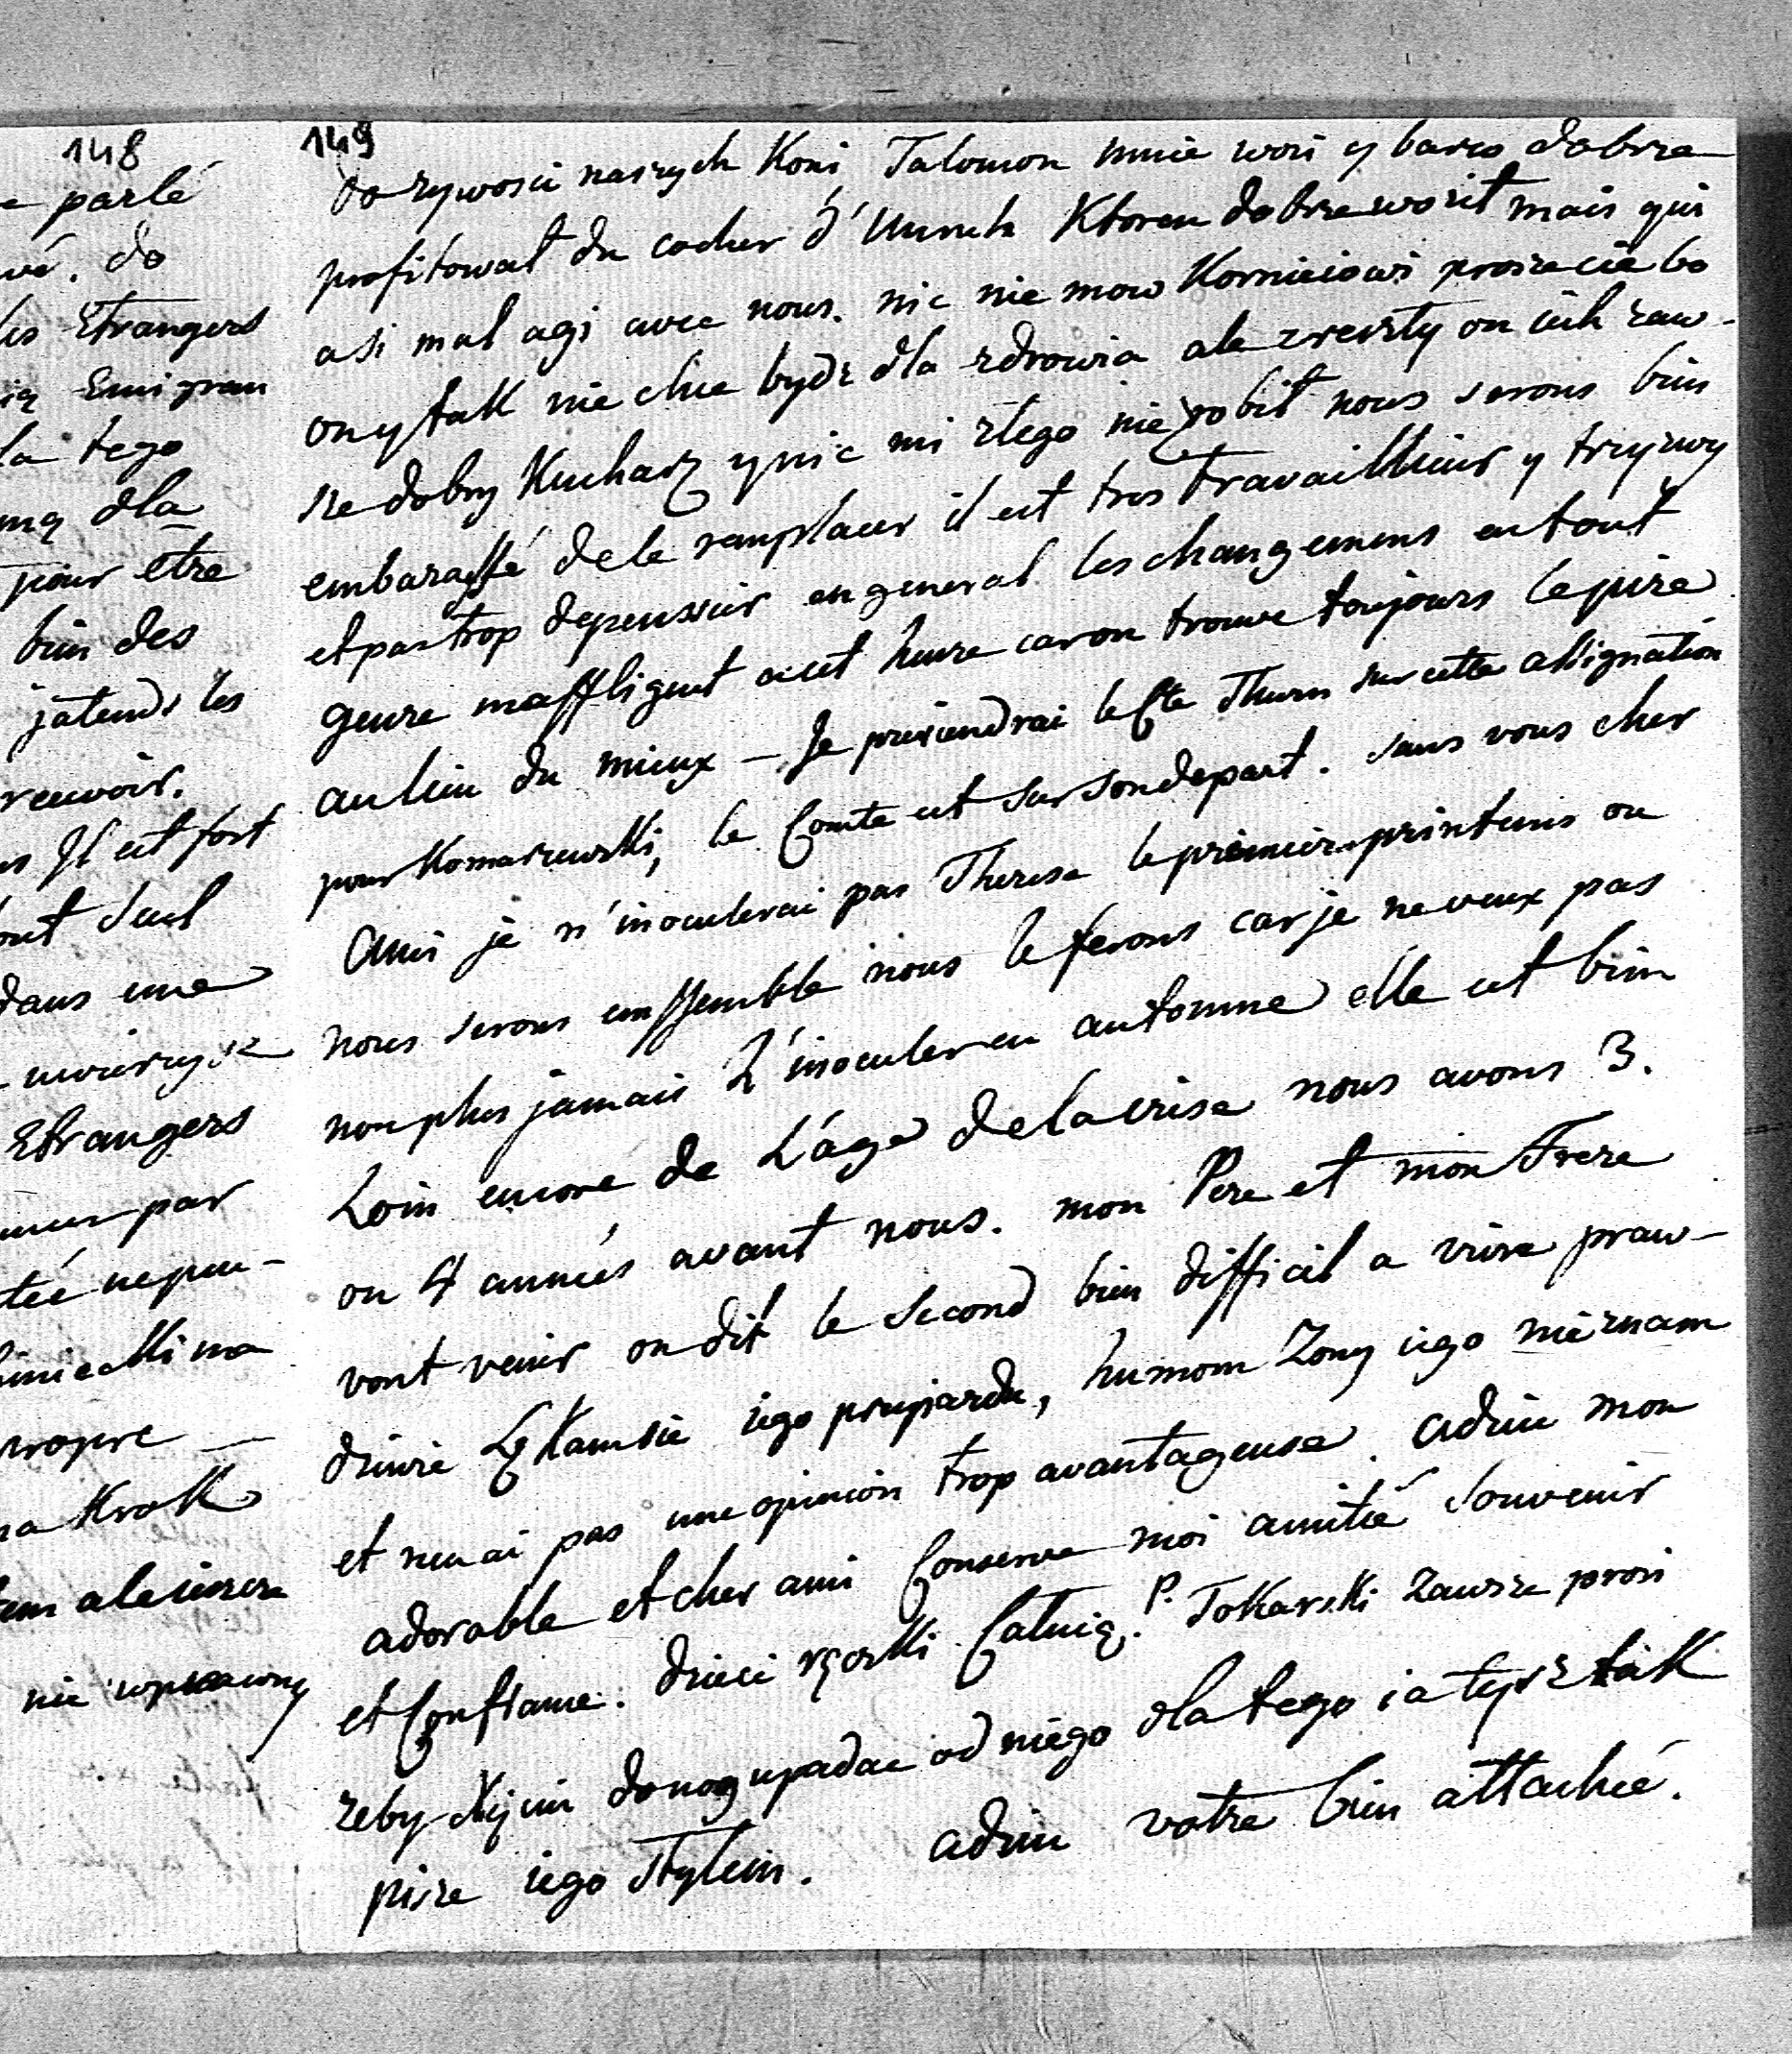 148
parlé
vé. do
les Etrangers
Emigran
la tego
mą dla
pour etre
bien des
jatends les
revoir.
Il est fort
out seul
dans une
Etrangers
par
propre
na Krok
ale ieszcze
nie wprawny
149
do zywosci naszych Koni Salomon mnie wozi y barzo dobrze
profitowal du cocher d'Unruh Ktoren dobrze wozil mais qui
a si mal agi avec nous. nic nie mow Kornieiowi prosze cie bo
on y tak nie chce bydz dla zdrowia ale zreszty on iak zaw-
sze dobry Kucharz y nic mi zlego nie robil nous serons bien
embarassé de le remplacer il est tres travaillieur y trzyzwy
et pas trop depenssier en general les changemens en tout
genre maffligent a cet heure car on trouve toujours le pire
au lieu du mieux – Je previendrai le Cte Thurn sur cette assignation
pour Komarzewski, le Comte est sur son depart. sans vous cher
Ami je n'inoculerai pas Therese le premier printems ou
nous serons enssemble nous le ferons car je ne veux pas
non plus jamais L'inoculer en automne elle est bien
Loin encore de L'age de la crise nous avons 3.
ou 4 années avant nous. mon Pere et mon Frere
vont venir on dit le second bien difficil a vivre praw-
dziwie Lękam sie iego przyiazdu, humom Zony iego nie znam
et nen ai pas une opinion trop avantageuse. adieu mon
adorable et cher ami Conserve moi amitié souvenir
et Confiance. dzieci rączki Caluią. P. Tokarski zawsze prosi
zeby Xięciu do nog upadac od niego dla tego ia tysz tak
pisze iego stylem. adieu votre bien attachée.